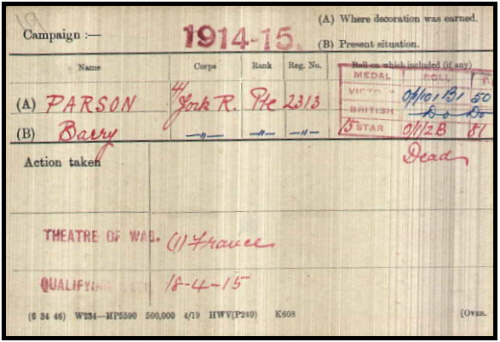 (A) Where decoration was earned.
Campaign :— 1914-15.
(B) Present situation.
Name Corps Rank Reg. No. Roll on which included (if any)
MEDAL ROLL
(A) PARSON 4/York R. Pte 2313 VICTORY O/1/101 B1 50
(B) Barry —"— —"— —"— BRITISH Do Do
15 STAR O/1/2B 81
Action taken Dead
THEATRE OF WAR. (1) France
QUALIFYING DATE 18-4-15
(6 34 46) W234—HP5590 500,000 4/19 HWV(P240) K608 (Over.